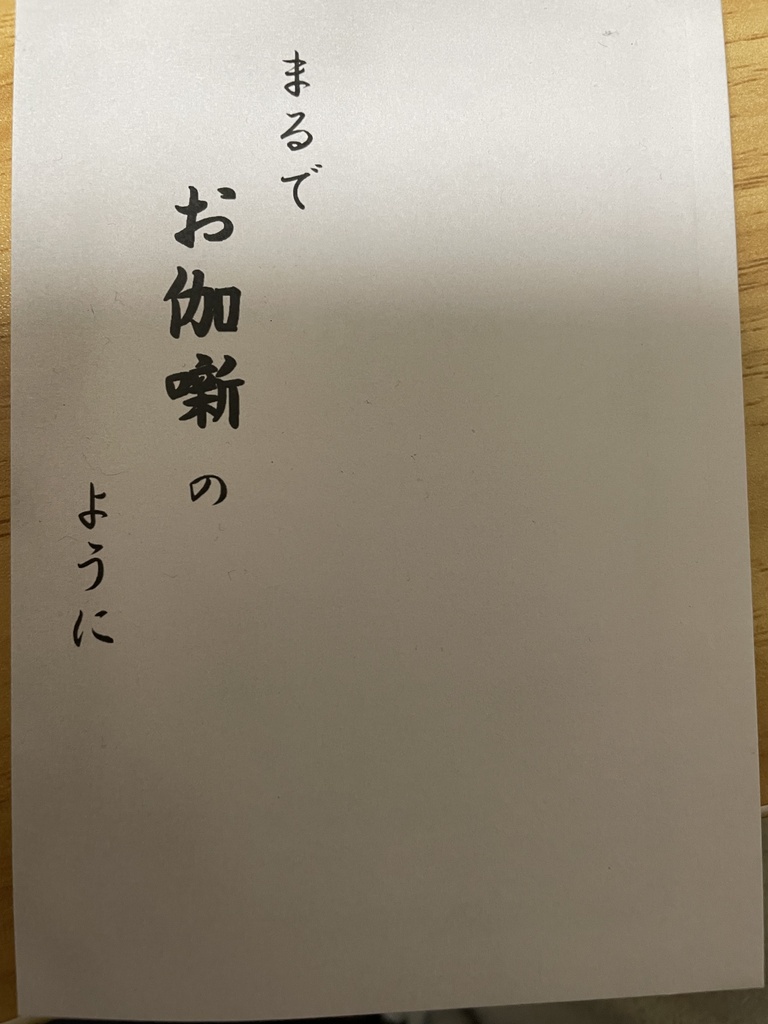 まるで
お伽噺の
ように